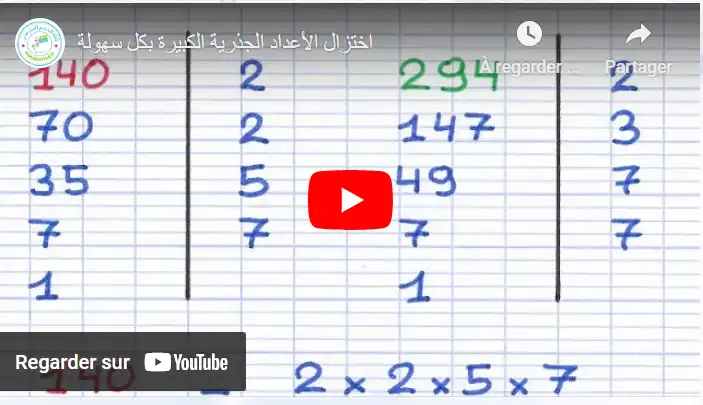 اختزال الأعداد الجذرية الكبيرة بكل سهولة
À regarder ... Partager
140 2 294 2
70 2 147 3
35 5 49 7
7 7 7 7
1 1
Regarder sur YouTube
140 = 2 × 2 × 5 × 7